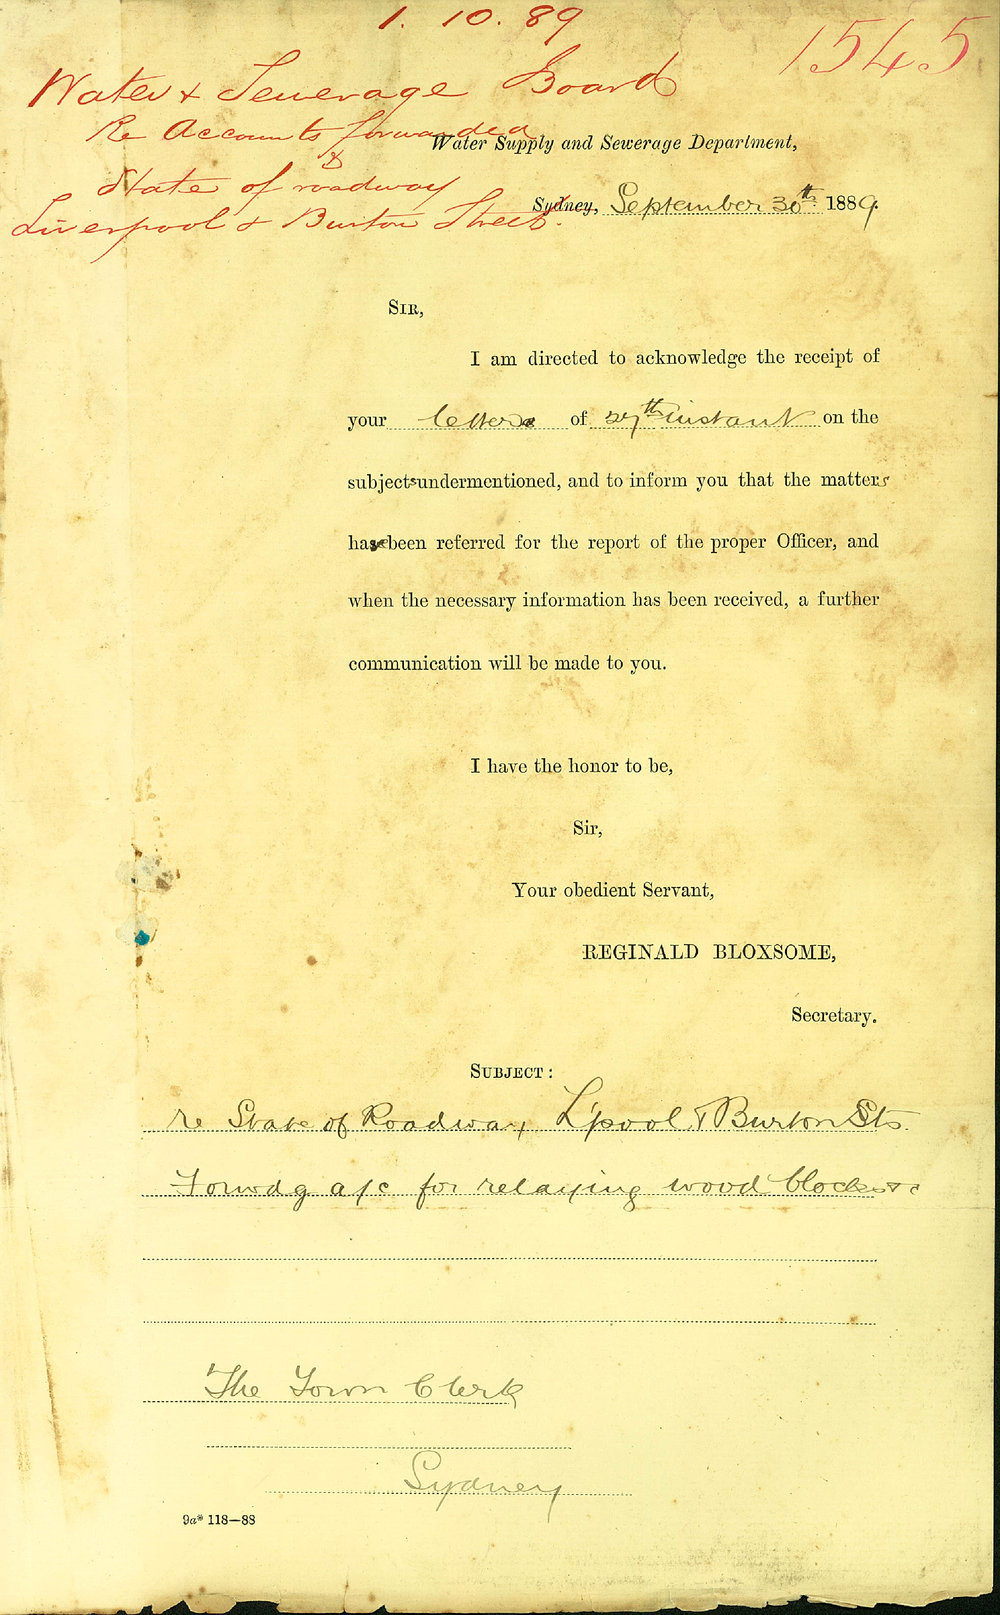 1. 10. 89
1545
Water & Sewerage Board
Re Accounts forwarded
&
State of roadway
Liverpool & Burton Streets.
Water Supply and Sewerage Department,
Sydney, September 30th 1889.
SIR,
I am directed to acknowledge the receipt of
your letters of 27th instant on the
subjects undermentioned, and to inform you that the matters
have been referred for the report of the proper Officer, and
when the necessary information has been received, a further
communication will be made to you.
I have the honor to be,
Sir,
Your obedient Servant,
REGINALD BLOXSOME,
Secretary.
SUBJECT:
re State of Roadway, L'pool & Burton Sts.
Forwdg a/c for relaying wood blocks &c
The Town Clerk
Sydney
9a* 118—88